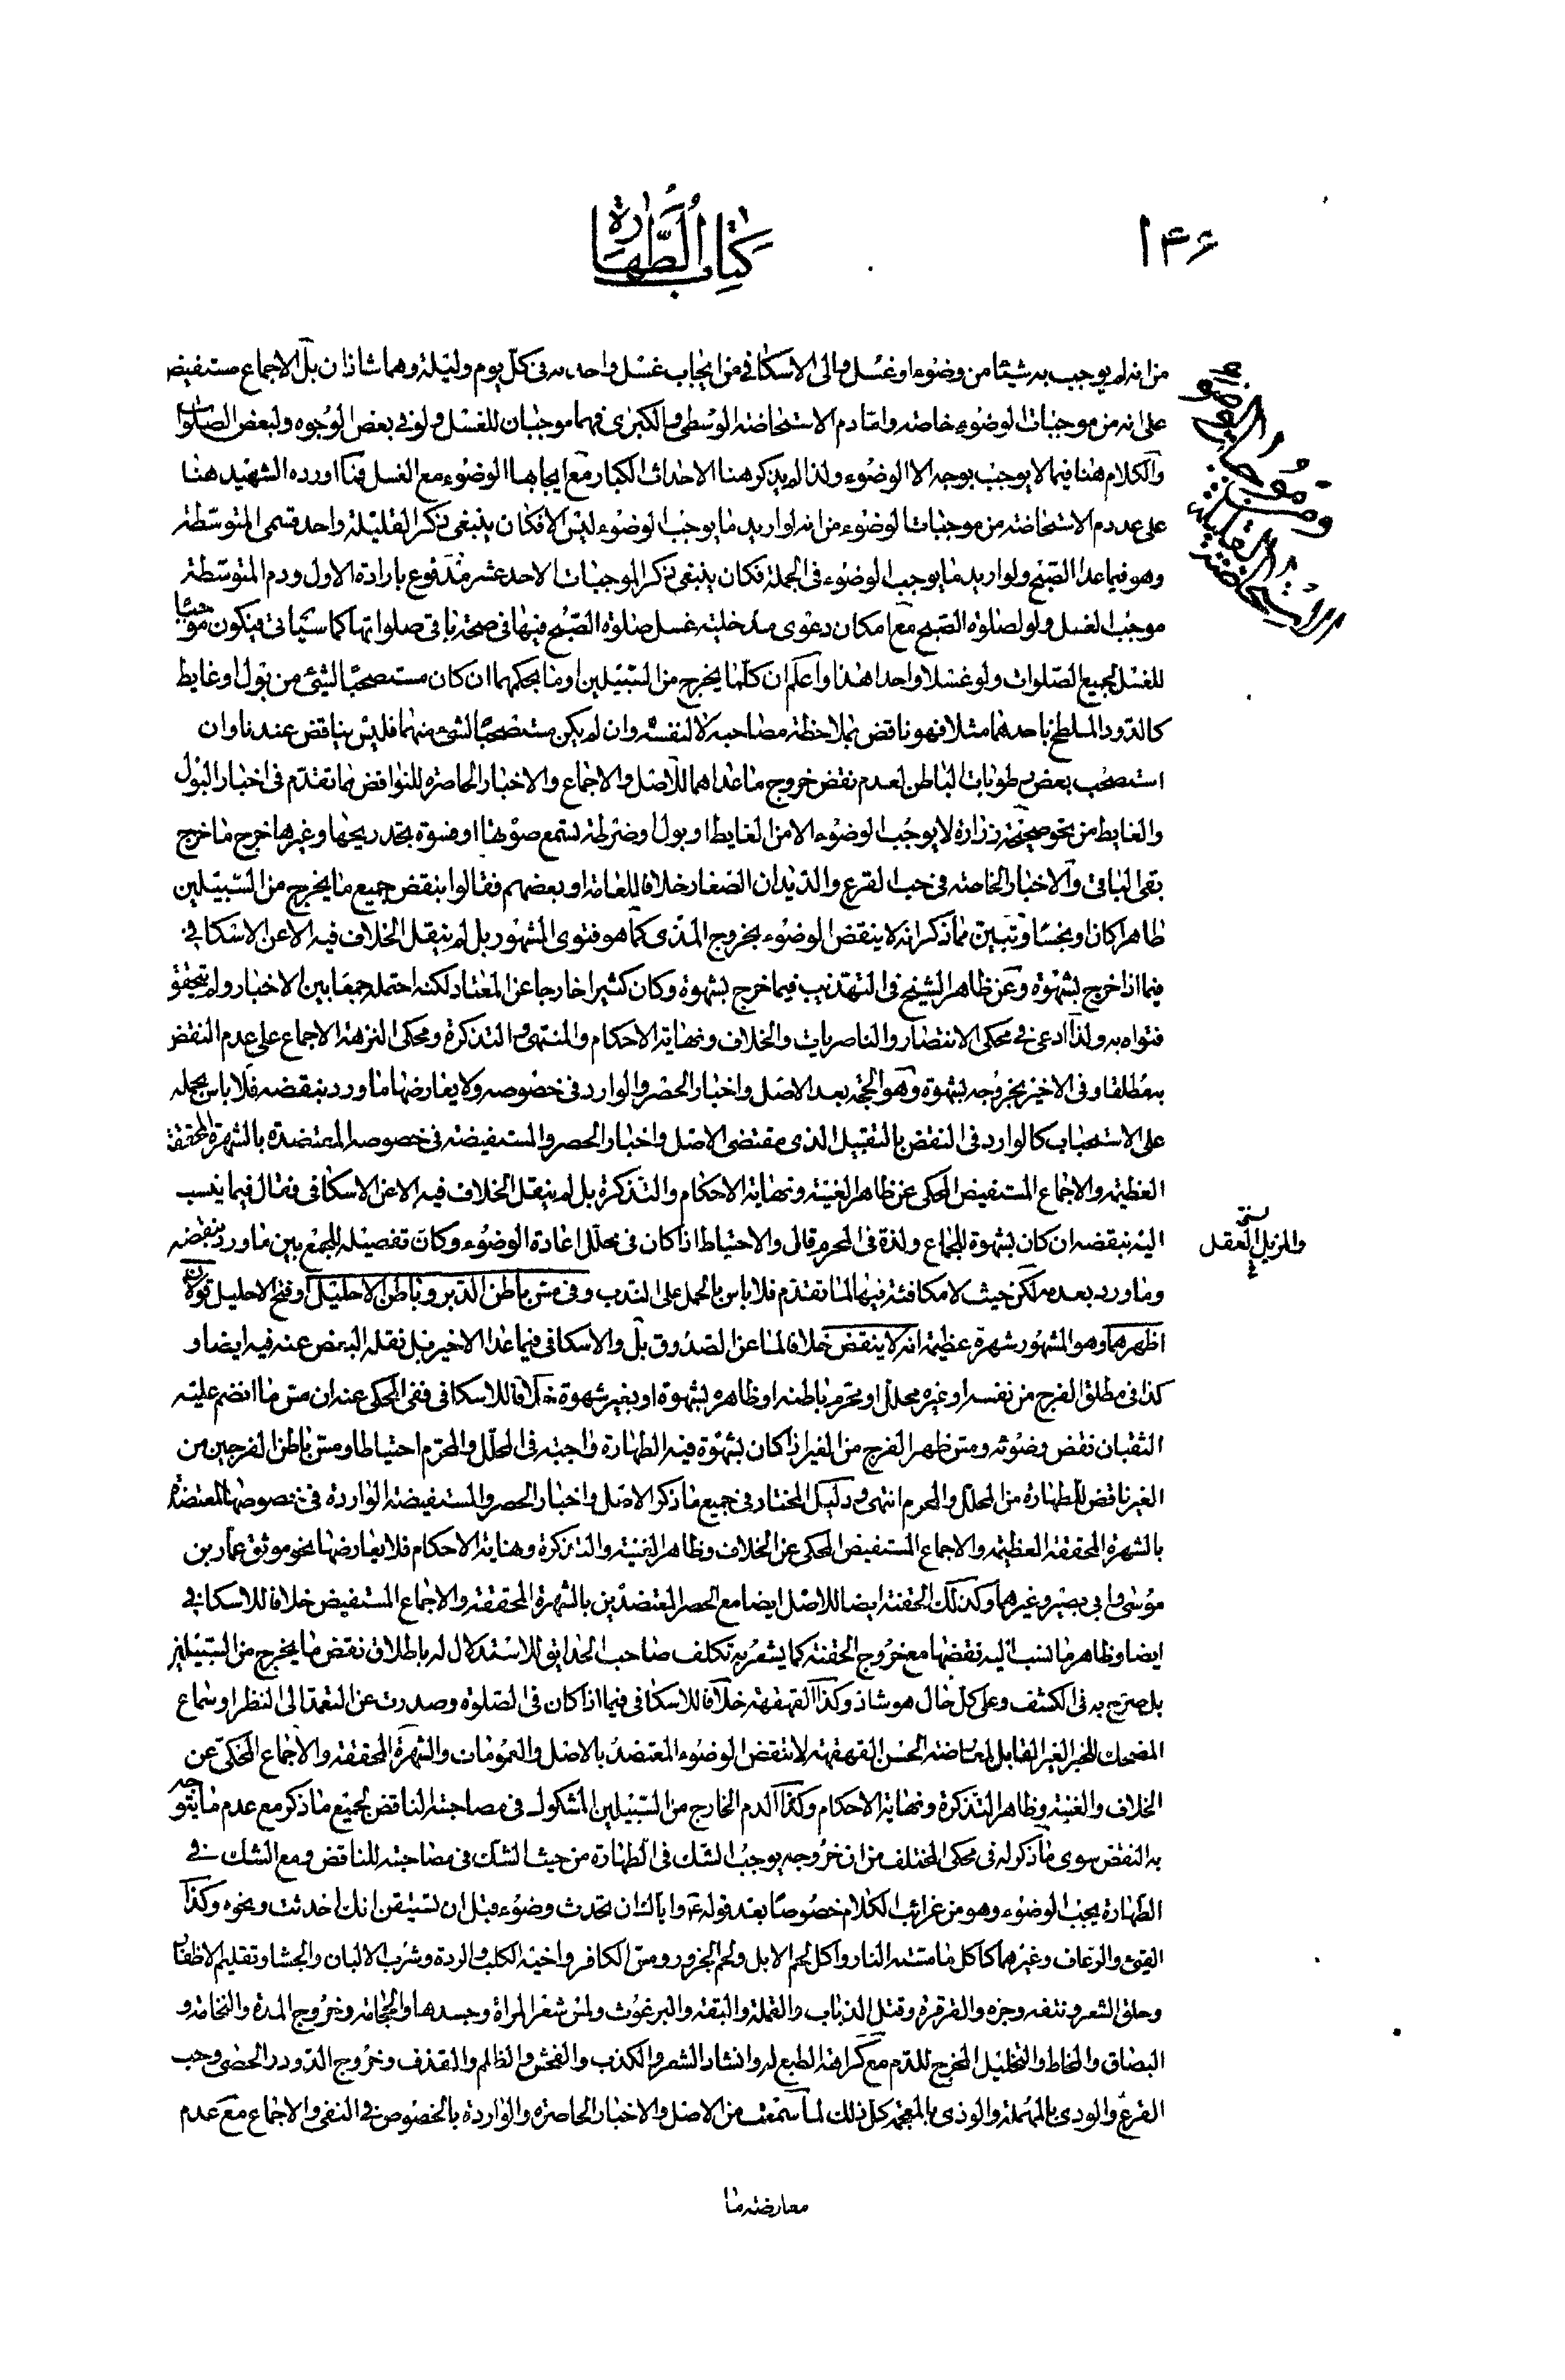 ۱۴۶
كتاب الطهارة
من انه لم يوجب به شيئا من وضوء او غسل والى الاسكافي من ايجاب غسل واحد به فى كل يوم وليلة وهما شاذان بل الاجماع مستفيض
على انه من موجبات الوضوء خاصة واما دم الاستحاضة الوسطى والكبرى فهما موجبان للغسل ولو فى بعض الوجوه ولبعض الصلوات
والكلام هنا فيما لا يوجب بوجه الا الوضوء ولذا لم يذكر هنا الاحداث الكبار مع ايجابها الوضوء مع الغسل فما اورده الشهيد هنا
على عد دم الاستحاضة من موجبات الوضوء من انه لو اريد ما يوجب الوضوء ليس الا فكان ينبغى ذكر القليلة واحد قسمى المتوسطة
وهو فيما عدا الصبح ولو اريد ما يوجب الوضوء فى الجملة فكان ينبغى ذكر الموجبات الاحد عشر مدفوع بارادة الاول ودم المتوسطة
موجب الغسل ولو لصلوة الصبح مع امكان دعوى مدخلية غسل صلوة الصبح فيها فى صحة باقى صلواتها كما سيأتى فيكون موجبا
للغسل لجميع الصلوات ولو غسلا واحدا هذا واعلم ان كلما يخرج من السبيلين او ما بحكمهما ان كان مستصحبا لشئ من بول او غايط
كالدود المتلطخ باحدهما مثلا فهو ناقض بملاحظة مصاحبه لا لنفسه وان لم يكن مستصحبا لشئ منهما فليس بناقض عندنا وان
استصحب بعض رطوبات الباطن لعدم نقض خروج ما عداهما للاصل والاجماع والاخبار الحاصرة للنواقض مما تقدم فى اخبار البول
والغايط من نحو صحيحة زرارة لا يوجب الوضوء الا من الغايط او بول او ضرطة تسمع صوتها او فسوة تجد ريحها وغيرها خرج ما خرج
بقى الباقى والاخبار الخاصة فى حب القرع والديدان الصغار خلافا للعامة او بعضهم فقالوا بنقض جميع ما يخرج من السبيلين
طاهرا كان او نجسا وتبين مما ذكر انه لا ينقض الوضوء بخروج المذى كما هو فتوى المشهور بل لم ينقل الخلاف فيه الا عن الاسكافي
فيما اذا خرج بشهوة وعن ظاهر الشيخ فى التهذيب فيما خرج بشهوة وكان كثيرا خارجا عن المعتاد لكنه احتمله جمعا بين الاخبار ولم يتحقق
فتواه به ولذا ادعى فى محكى الانتصار والناصريات والخلاف ونهاية الاحكام والمنتهى والتذكرة ومحكى النزهة الاجماع على عدم النقض
به مطلقا وفى الاخير بخروجه بشهوة وهو الحجة بعد الاصل واخبار الحصر والوارد فى خصوصه ولا يعارضها ما ورد بنقضه فلا باس بحمله
على الاستحباب كالوارد فى النقض بالتقبيل الذى مقتضى الاصل واخبار الحصر والمستفيضة فى خصوصه المعتضدة بالشهرة المحققة
العظيمة والاجماع المستفيض المحكى عن ظاهر الغنية ونهاية الاحكام والتذكرة بل لم ينقل الخلاف فيه الا عن الاسكافى فقال فيما ينسب
اليه بنقضه ان كان بشهوة للجماع ولذة فى المحرم قال والاحتياط اذا كان فى محلل اعادة الوضوء وكان تفصيله للجمع بين ما ورد بنقضه
وما ورد بعدمه لكن حيث لا مكافئة فيها لما تقدم فلا باس بالحمل على الندب وفى مس باطن الدبر وباطن الاحليل او فتح الاحليل قولان
اظهرهما وهو المشهور شهرة عظيمة انه لا ينقض خلافا لما عن الصدوق بل والاسكافى فيما عدا الاخير بل نقله البعض عنه فيه ايضا و
كذا فى مطلق الفرج من نفسه او غيره محللا او محرم باطنه او ظاهره بشهوة او بغير شهوة خلافا للاسكافى ففى المحكى عنه ان مس ما انضم عليه
الثقبان نقض وضوئه ومس ظهر الفرج من الغير اذا كان بشهوة فيه الطهارة واجبة فى المحلل والمحرم احتياطا ومس باطن الفرجين من
الغير ناقض للطهارة من المحلل والمحرم انتهى ودليل المختار فى جميع ما ذكر الاصل واخبار الحصر والمستفيضة الواردة فى خصوصها المعتضدة
بالشهرة المحققة العظيمة والاجماع المستفيض المحكى عن الخلاف وظاهر الغنية والتذكرة ونهاية الاحكام فلا يعارضها نحو موثق عمار بن
موسى وابى بصير وغيرهما وكذلك الحقنة ايضا للاصل ايضا مع الحصر المعتضدين بالشهرة المحققة والاجماع المستفيض خلافا للاسكافي
ايضا وظاهر ما نسب اليه نقضها مع خروج الحقنة كما يشعر به تكلف صاحب الحدايق للاستدلال له باطلاق نقض ما يخرج من السبيلين
بل صرح به فى الكشف وعلى كل حال هو شاذ وكذا القهقهة خلافا للاسكافى فيما اذا كان فى الصلوة وصدرت عن التعمد الى النظر او سماع
المضحك للخبر الغير القابل لمعارضة الحسن القهقهة لا تنقض الوضوء المعتضد بالاصل والعمومات والشهرة المحققة والاجماع المحكى عن
الخلاف والغنية وظاهر التذكرة ونهاية الاحكام وكذا الدم الخارج من السبيلين المشكوك فى مصاحبته الناقض لجميع ما ذكر مع عدم ما يتوجه
به النقض سوى ما ذكر له فى محكى المختلف من ان خروجه يوجب الشك فى الطهارة من حيث الشك فى مصاحبته للناقض ومع الشك فى
الطهارة يجب الوضوء وهو من غرائب الكلام خصوصا بعد قوله ع واياك ان تحدث وضوء قبل ان تستيقن انك احدثت ونحوه وكذا
القيئ والرعاف وغيرهما كاكل ما مسته النار واكل لحم الابل ولحم الجزور ومس الكافر واخيه الكلب والردة وشرب الالبان والجشا وتقليم الاظفار
وحلق الشعر ونتفه وجزه والقرقرة وقتل الذباب والقملة والبقة والبرغوث ولمس شعر المراة وجسدها والحجامة وخروج المدة والنخامة و
البصاق والمخاط والتخليل المخرج للدم مع كراهة الطبع له وانشاد الشعر والكذب والفحش والظلم والقذف وخروج الدود والحصى وحب
القرع والودى بالمهملة والوذى بالمعجمة كل ذلك لما سمعت من الاصل والاخبار الحاصرة والواردة بالخصوص فى النفى والاجماع مع عدم
معارضته ما
ومن موجبات الوضوء
الاستحاضة القليلة
والمزيل العقل